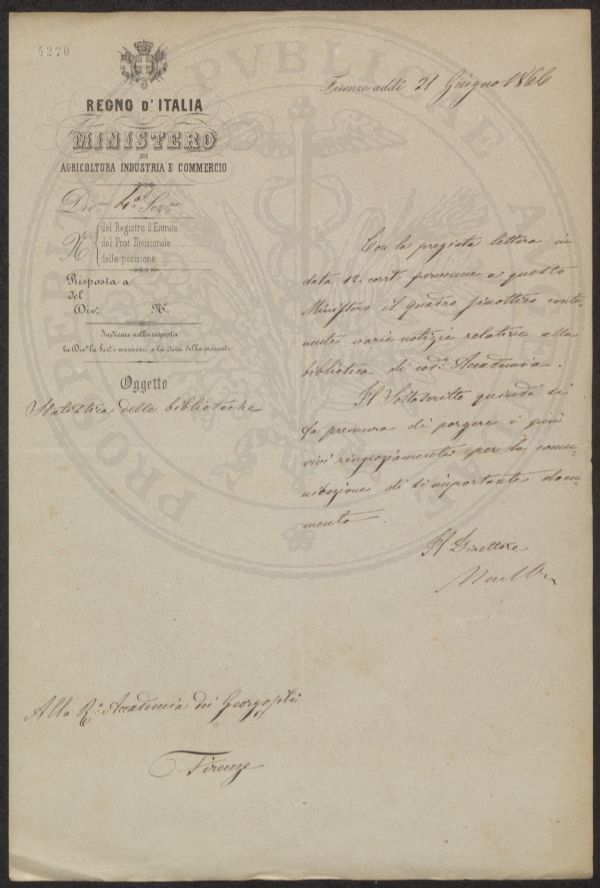 4270
REGNO D'ITALIA
MINISTERO
DI
AGRICOLTURA INDUSTRIA E COMMERCIO
Div.ne 4a Sez.ne
N.o
del Registro d'Entrata
del Prot. Divisionale
della posizione
Risposta a
del
Div.e N.o
Indicare nella risposta
la Div.e la Sez.e i numeri e la data della presente
Oggetto
Statistica delle biblioteche
Firenze addì 21 Giugno 1866
Con la pregiata lettera in
data 12 corr.te pervenne a questo
Ministero il quadro sinottico conte-
nente varie notizie relative alla
biblioteca di cod.a Accademia.
Il Sottoscritto quindi si
fa premura di porgere i più
vivi ringraziamenti per la comu-
nicazione di sì importante docu-
mento.
Il Direttore
Alla R.a Accademia dei Georgofili
Firenze